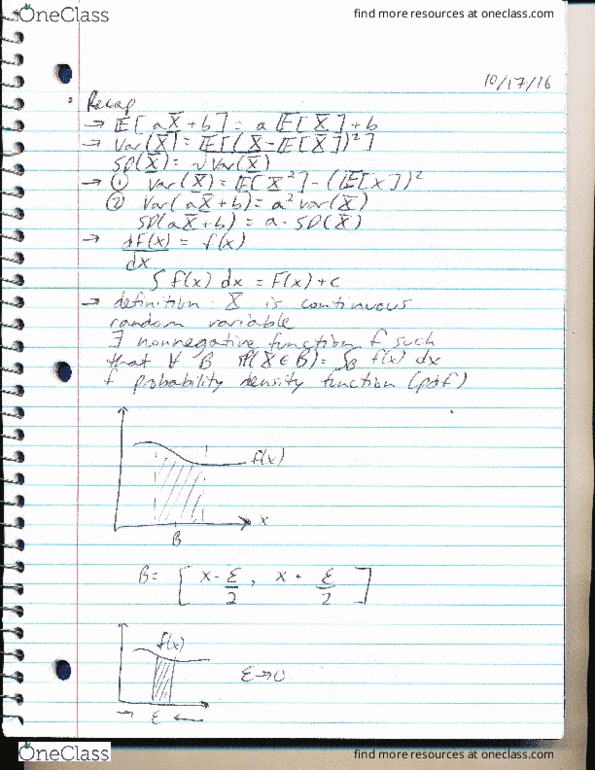 OneClass
find more resources at oneclass.com
10/17/16
Recap
→ 𝔼[aX̄+b] = a 𝔼[X̄]+b
→ Var(X̄) = 𝔼[(X̄-𝔼[X̄])²]
SD(X̄) = √Var(X̄)
→ ① Var(X̄) = 𝔼[X̄²] - (𝔼[X])²
② Var(aX̄+b) = a² var(X̄)
SD(aX̄+b) = a · SD(X̄)
→ dF(x) = f(x)
dx
∫ f(x) dx = F(x) + c
→ definition: X̄ is continuous
random variable
∃ nonnegative function f such
that ∀ B ℙ(X̄ ∈ B) = ∫B f(x) dx
f probability density function (pdf)
f(x)
x
B
B = [ x - ε/2 , x + ε/2 ]
f(x)
ε→0
→ ε ←
OneClass
find more resources at oneclass.com